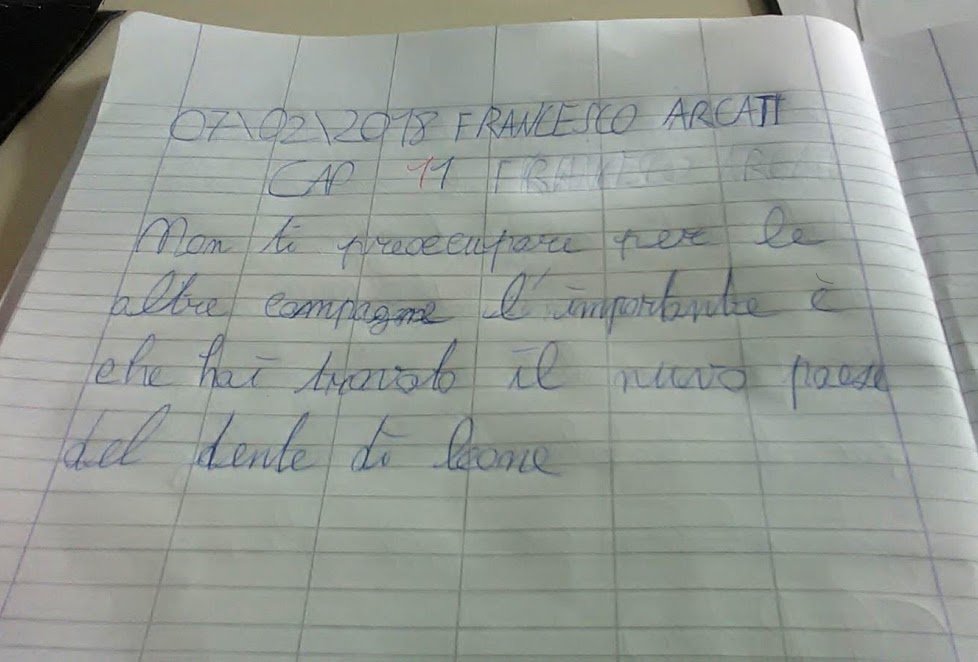 07\02\2018 FRANCESCO ARCATI
CAP 11 FRANCESCO ARCA
Non ti preoccupare per le
altre compagne l'importante è
che hai trovato il nuvo paese
del dente di leone